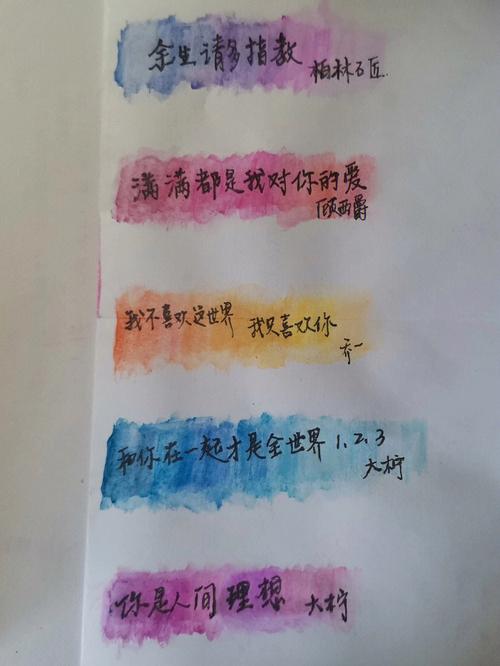 余生请多指教
柏林石匠
满满都是我对你的爱
顾西爵
我不喜欢这世界 我只喜欢你
乔一
和你在一起才是全世界 1.2.3
大柠
你是人间理想 大柠